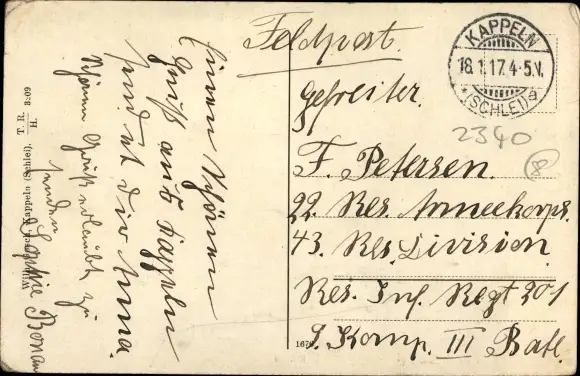 Feldpost.
KAPPELN
18.1.17.4-5.N.
* (SCHLEI) a
Gefreiter.
2340
F. Petersen.
22. Res. Armeekorps.
43. Res. Division
Res. Inf. Regt 201
9. Komp. III Batl.
Einen schönen
Gruß aus Kappeln
sendet dir Anna.
Schönen Gruß erlaubt zu
senden
Sophie
Kappeln (Schlei).
T. R. 3:09
H.